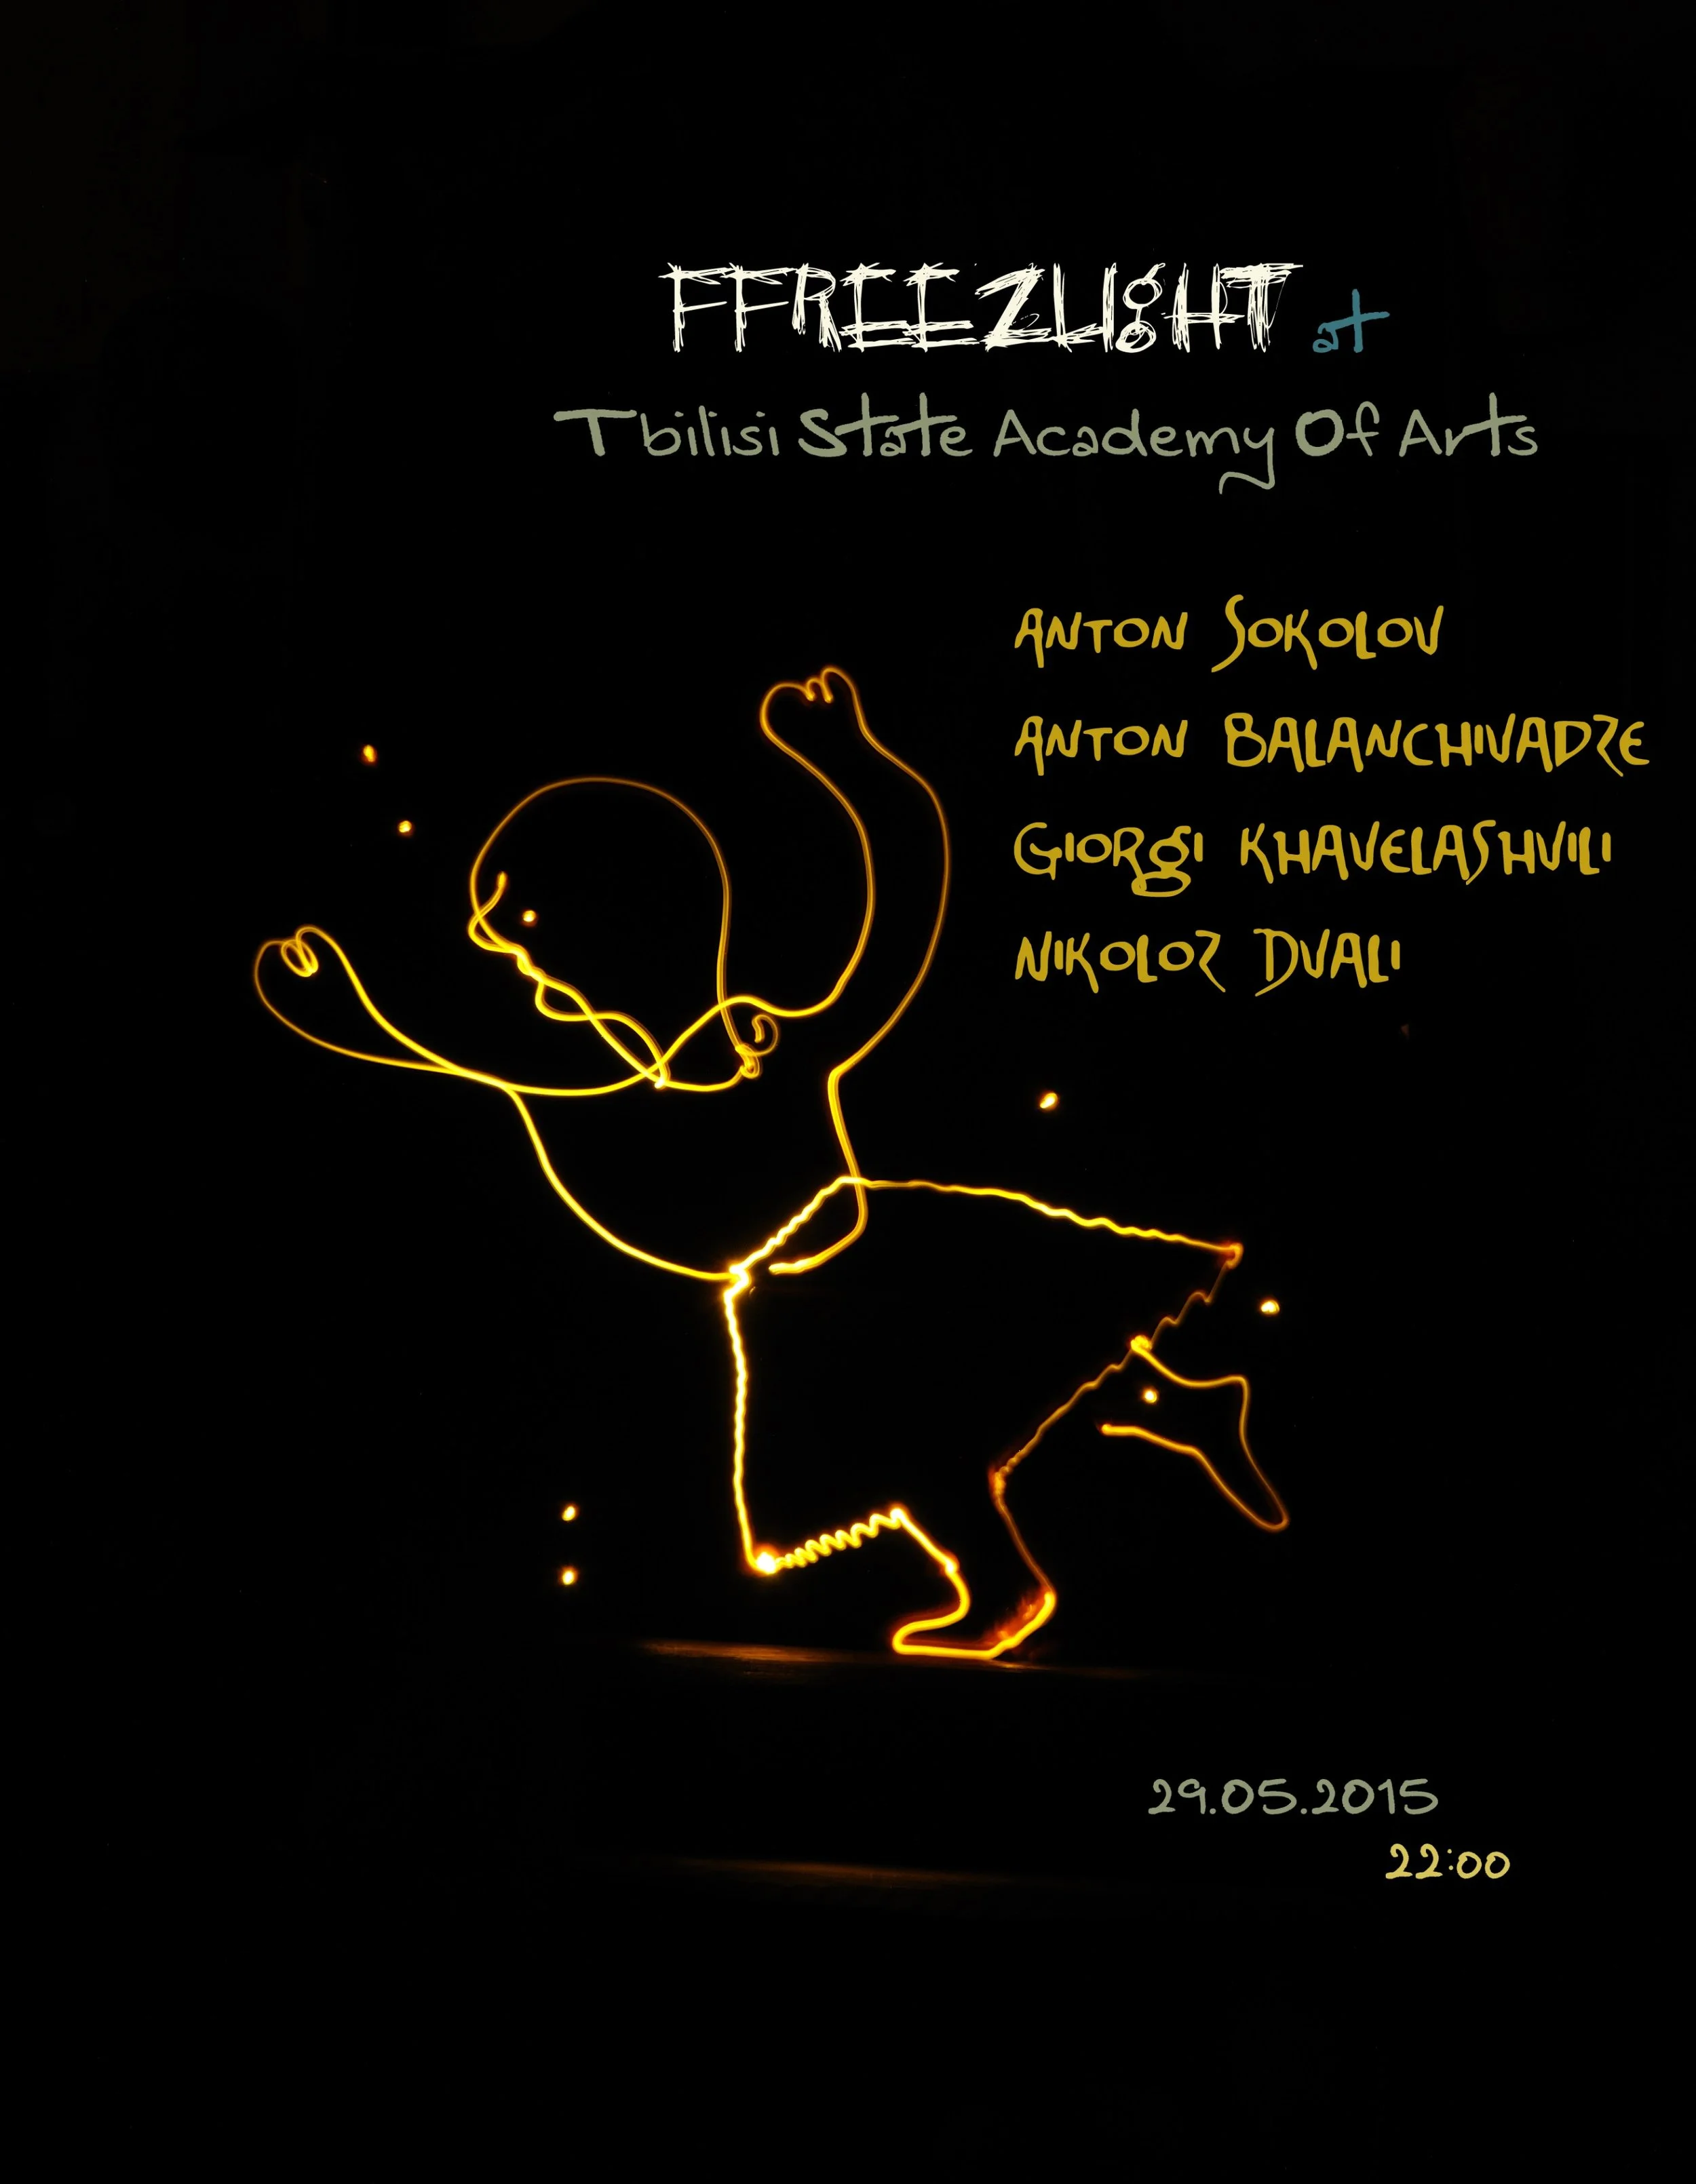 FFREEZLIgHT at
Tbilisi State Academy Of Arts
ANTON SOKOLOV
ANTON BALANCHIVADZE
GIORgI KHAVELASHVILI
NIKOLOZ DVALI
29.05.2015
22:00